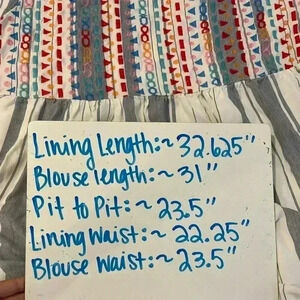 Lining Length:~ 32.625"
Blouse length:~ 31"
Pit to Pit:~ 23.5"
Lining Waist:~ 22.25"
Blouse Waist:~ 23.5"